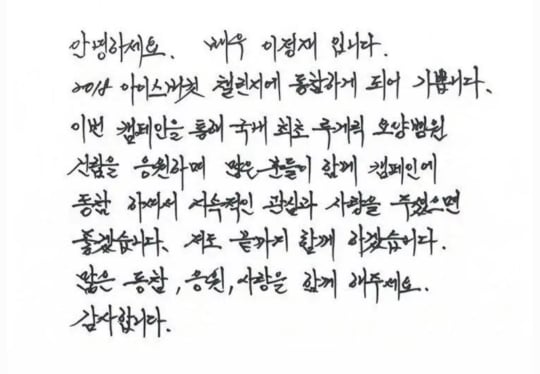 안녕하세요. 배우 이정재 입니다.
2018 아이스버킷 챌린지에 동참하게 되어 기쁩니다.
이번 캠페인을 통해 국내 최초 루게릭 요양병원
건립을 응원하며 많은 분들이 함께 캠페인에
동참 하셔서 지속적인 관심과 사랑을 주셨으면
좋겠습니다. 저도 끝까지 함께 하겠습니다.
많은 동참, 응원, 사랑을 함께 해주세요.
감사합니다.